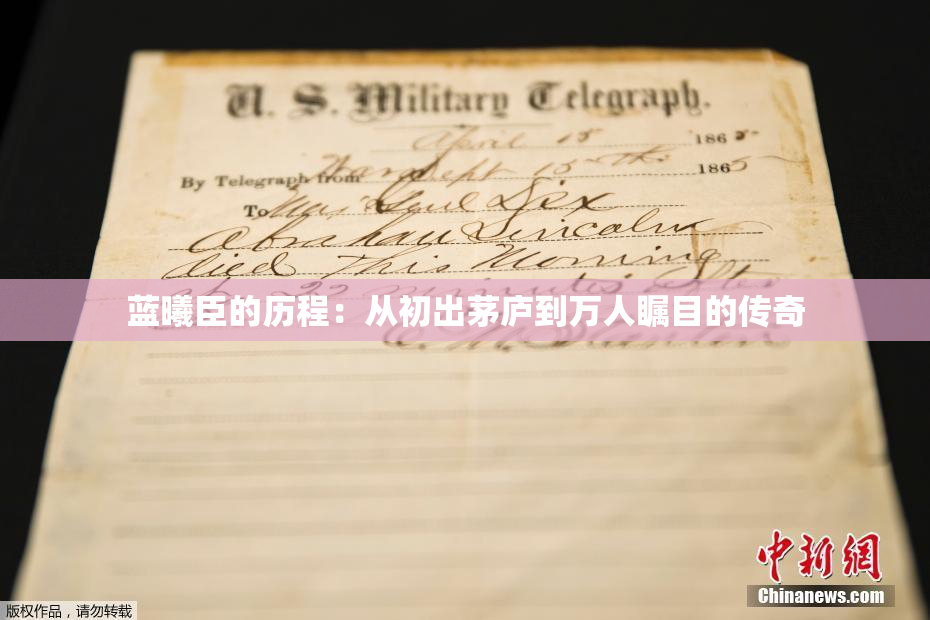 U. S. Military Telegraph.
April 15 1865
By Telegraph from War Dept 15th 1865
To Maj Genl Dix
Abraham Lincoln
died This Morning
at 22 minutes after
蓝曦臣的历程：从初出茅庐到万人瞩目的传奇
E. M. Stanton
中新网
Chinanews.com
版权作品，请勿转载